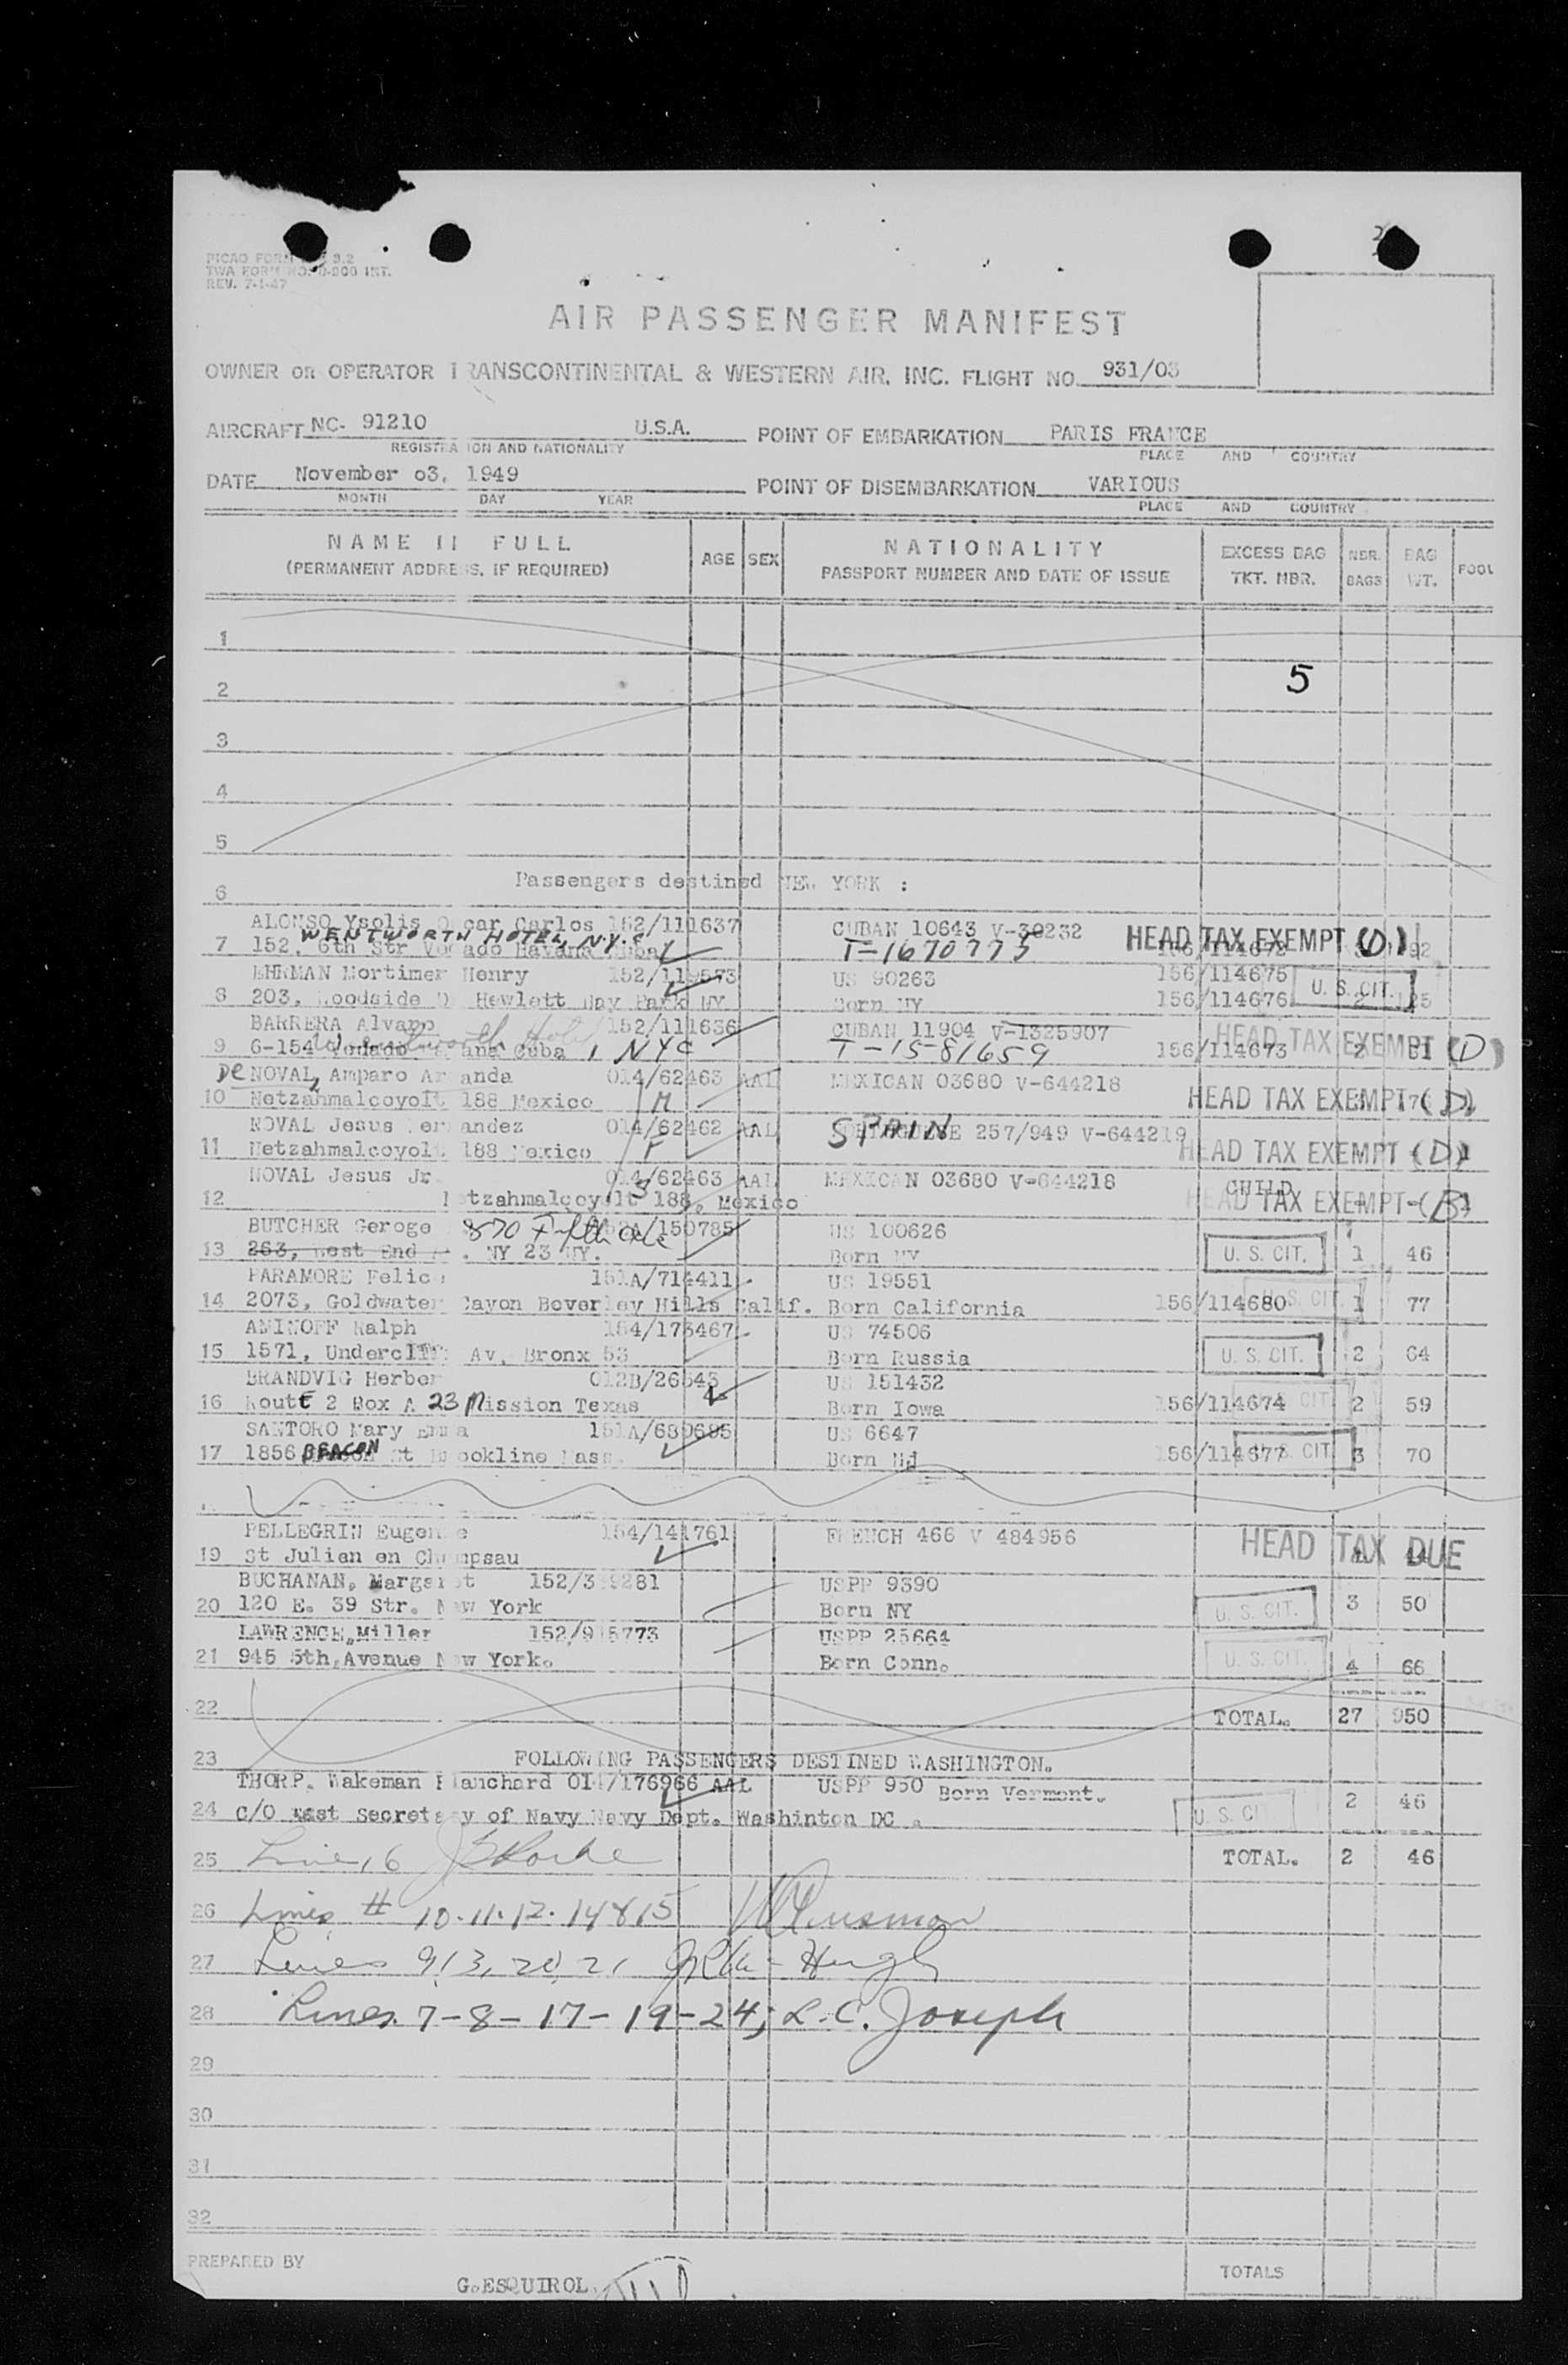 PICAO FORM 9.2
TWA FORM NO. 0-900 INT.
REV. 7-1-47
AIR PASSENGER MANIFEST
OWNER OR OPERATOR TRANSCONTINENTAL & WESTERN AIR, INC. FLIGHT NO. 931/03
AIRCRAFT NC- 91210 U.S.A. POINT OF EMBARKATION PARIS FRANCE
REGISTRATION AND NATIONALITY PLACE AND COUNTRY
DATE November 03, 1949 POINT OF DISEMBARKATION VARIOUS
MONTH DAY YEAR PLACE AND COUNTRY
NAME IN FULL AGE SEX NATIONALITY EXCESS BAG NBR. BAG FOOD
(PERMANENT ADDRESS, IF REQUIRED) PASSPORT NUMBER AND DATE OF ISSUE TKT. NBR. BAGS WT.
1
2 5
3
4
5
6 Passengers destined NEW YORK :
ALONSO Ysolis Oscar Carlos 152/111637 CUBAN 10643 V-30232
WENTWORTH HOTEL, N.Y.C. HEAD TAX EXEMPT (D)
7 152, 6th Str Vedado Havana Cuba T-1670775 92
EHRMAN Mortimer Henry 152/119573 US 90263 156/114675 U. S. CIT.
8 203, Woodside Dr Hewlett Bay Park NY Born NY 156/114676
BARRERA Alvaro 152/111636 CUBAN 11904 V-1325907 HEAD TAX EXEMPT (D)
Wentworth Hotel
9 6-154 Vedado Havana Cuba, NYC T-1581659 156/114673 2 81
De NOVAL, Amparo Ar anda 014/62463 AAL MEXICAN 03680 V-644218
10 Netzahmalcoyolt 188 Mexico M HEAD TAX EXEMPT (D)
NOVAL Jesus Fernandez 014/62462 AAL SPAIN 257/949 V-644219
11 Netzahmalcoyolt 188 Mexico F HEAD TAX EXEMPT (D)
NOVAL Jesus Jr. 014/62463 AAL MEXICAN 03680 V-644218 CHILD
12 Netzahmalcoyolt 188, Mexico S HEAD TAX EXEMPT (B)
BUTCHER Geroge 870 Fifth Ave 152A/150785 US 100626
13 263, West End A. NY 23 NY. Born NY U. S. CIT. 1 46
PARAMORE Felice 151A/714411 US 19551
14 2073, Goldwater Cayon Beverley Hills Calif. Born California 156/114680 U. S. CIT. 1 77
AMINOFF Ralph 154/173467 US 74506
15 1571, Undercliff Av, Bronx 53 Born Russia U. S. CIT. 2 64
BRANDVIG Herber 012B/26543 US 151432
16 RoutE 2 Box A 23 Mission Texas Born Iowa 156/114674 CIT 2 59
SANTORO Mary Emma 151A/689695 US 6647
17 1856 BEACON St Brookline Mass. Born Md 156/114677 U. S. CIT 3 70
PELLEGRIN Eugenie 154/141761 FRENCH 466 V 484956 HEAD TAX DUE
19 St Julien en Champsau
BUCHANAN, Margaret 152/3 9281 USPP 9390
20 120 E. 39 Str. New York Born NY U. S. CIT. 3 50
LAWRENCE, Miller 152/915773 USPP 25664
21 945 5th, Avenue New York. Born Conn. U. S. CIT. 4 66
22 TOTAL. 27 950
23 FOLLOWING PASSENGERS DESTINED WASHINGTON.
THORP. Wakeman Blanchard 014/176966 AAL USPP 950 Born Vermont.
24 C/O asst Secretary of Navy Navy Dept. Washinton DC . U. S. CI 2 46
25 Line, 6 TOTAL. 2 46
26 Lines # 10.11.12.14&15
27 Lines 9,13, 20, 21
28 Lines 7-8-17-19-24; L.C. Joseph
29
30
31
32
PREPARED BY TOTALS
G.ESQUIROL.